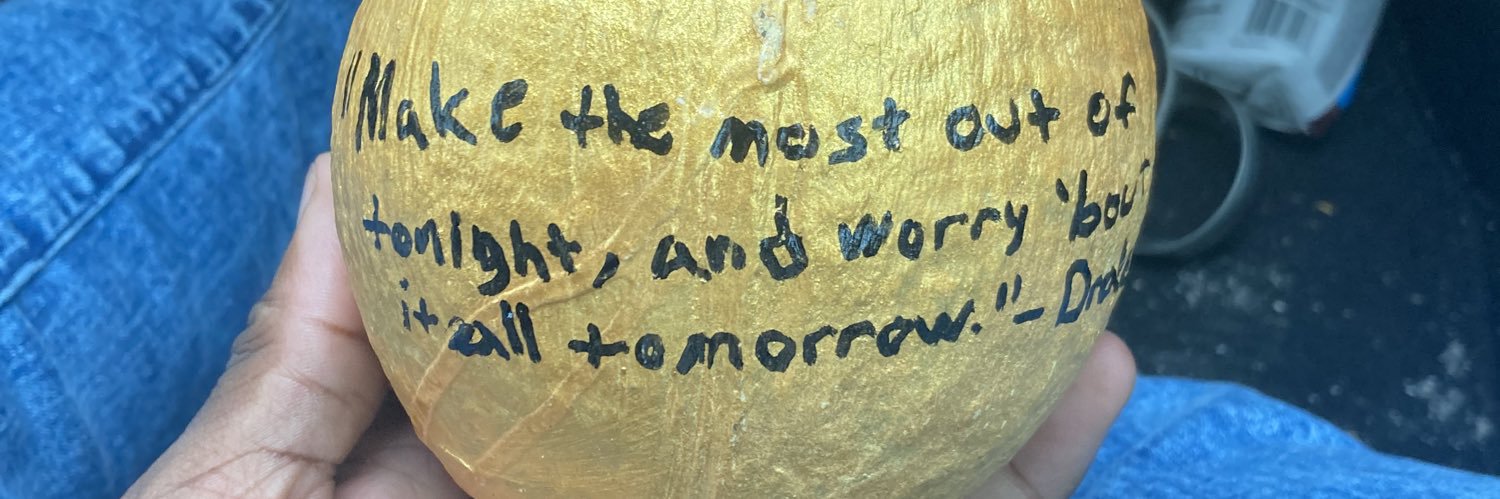 "Make the most out of
tonight, and worry 'bout
it all tomorrow." - Drake